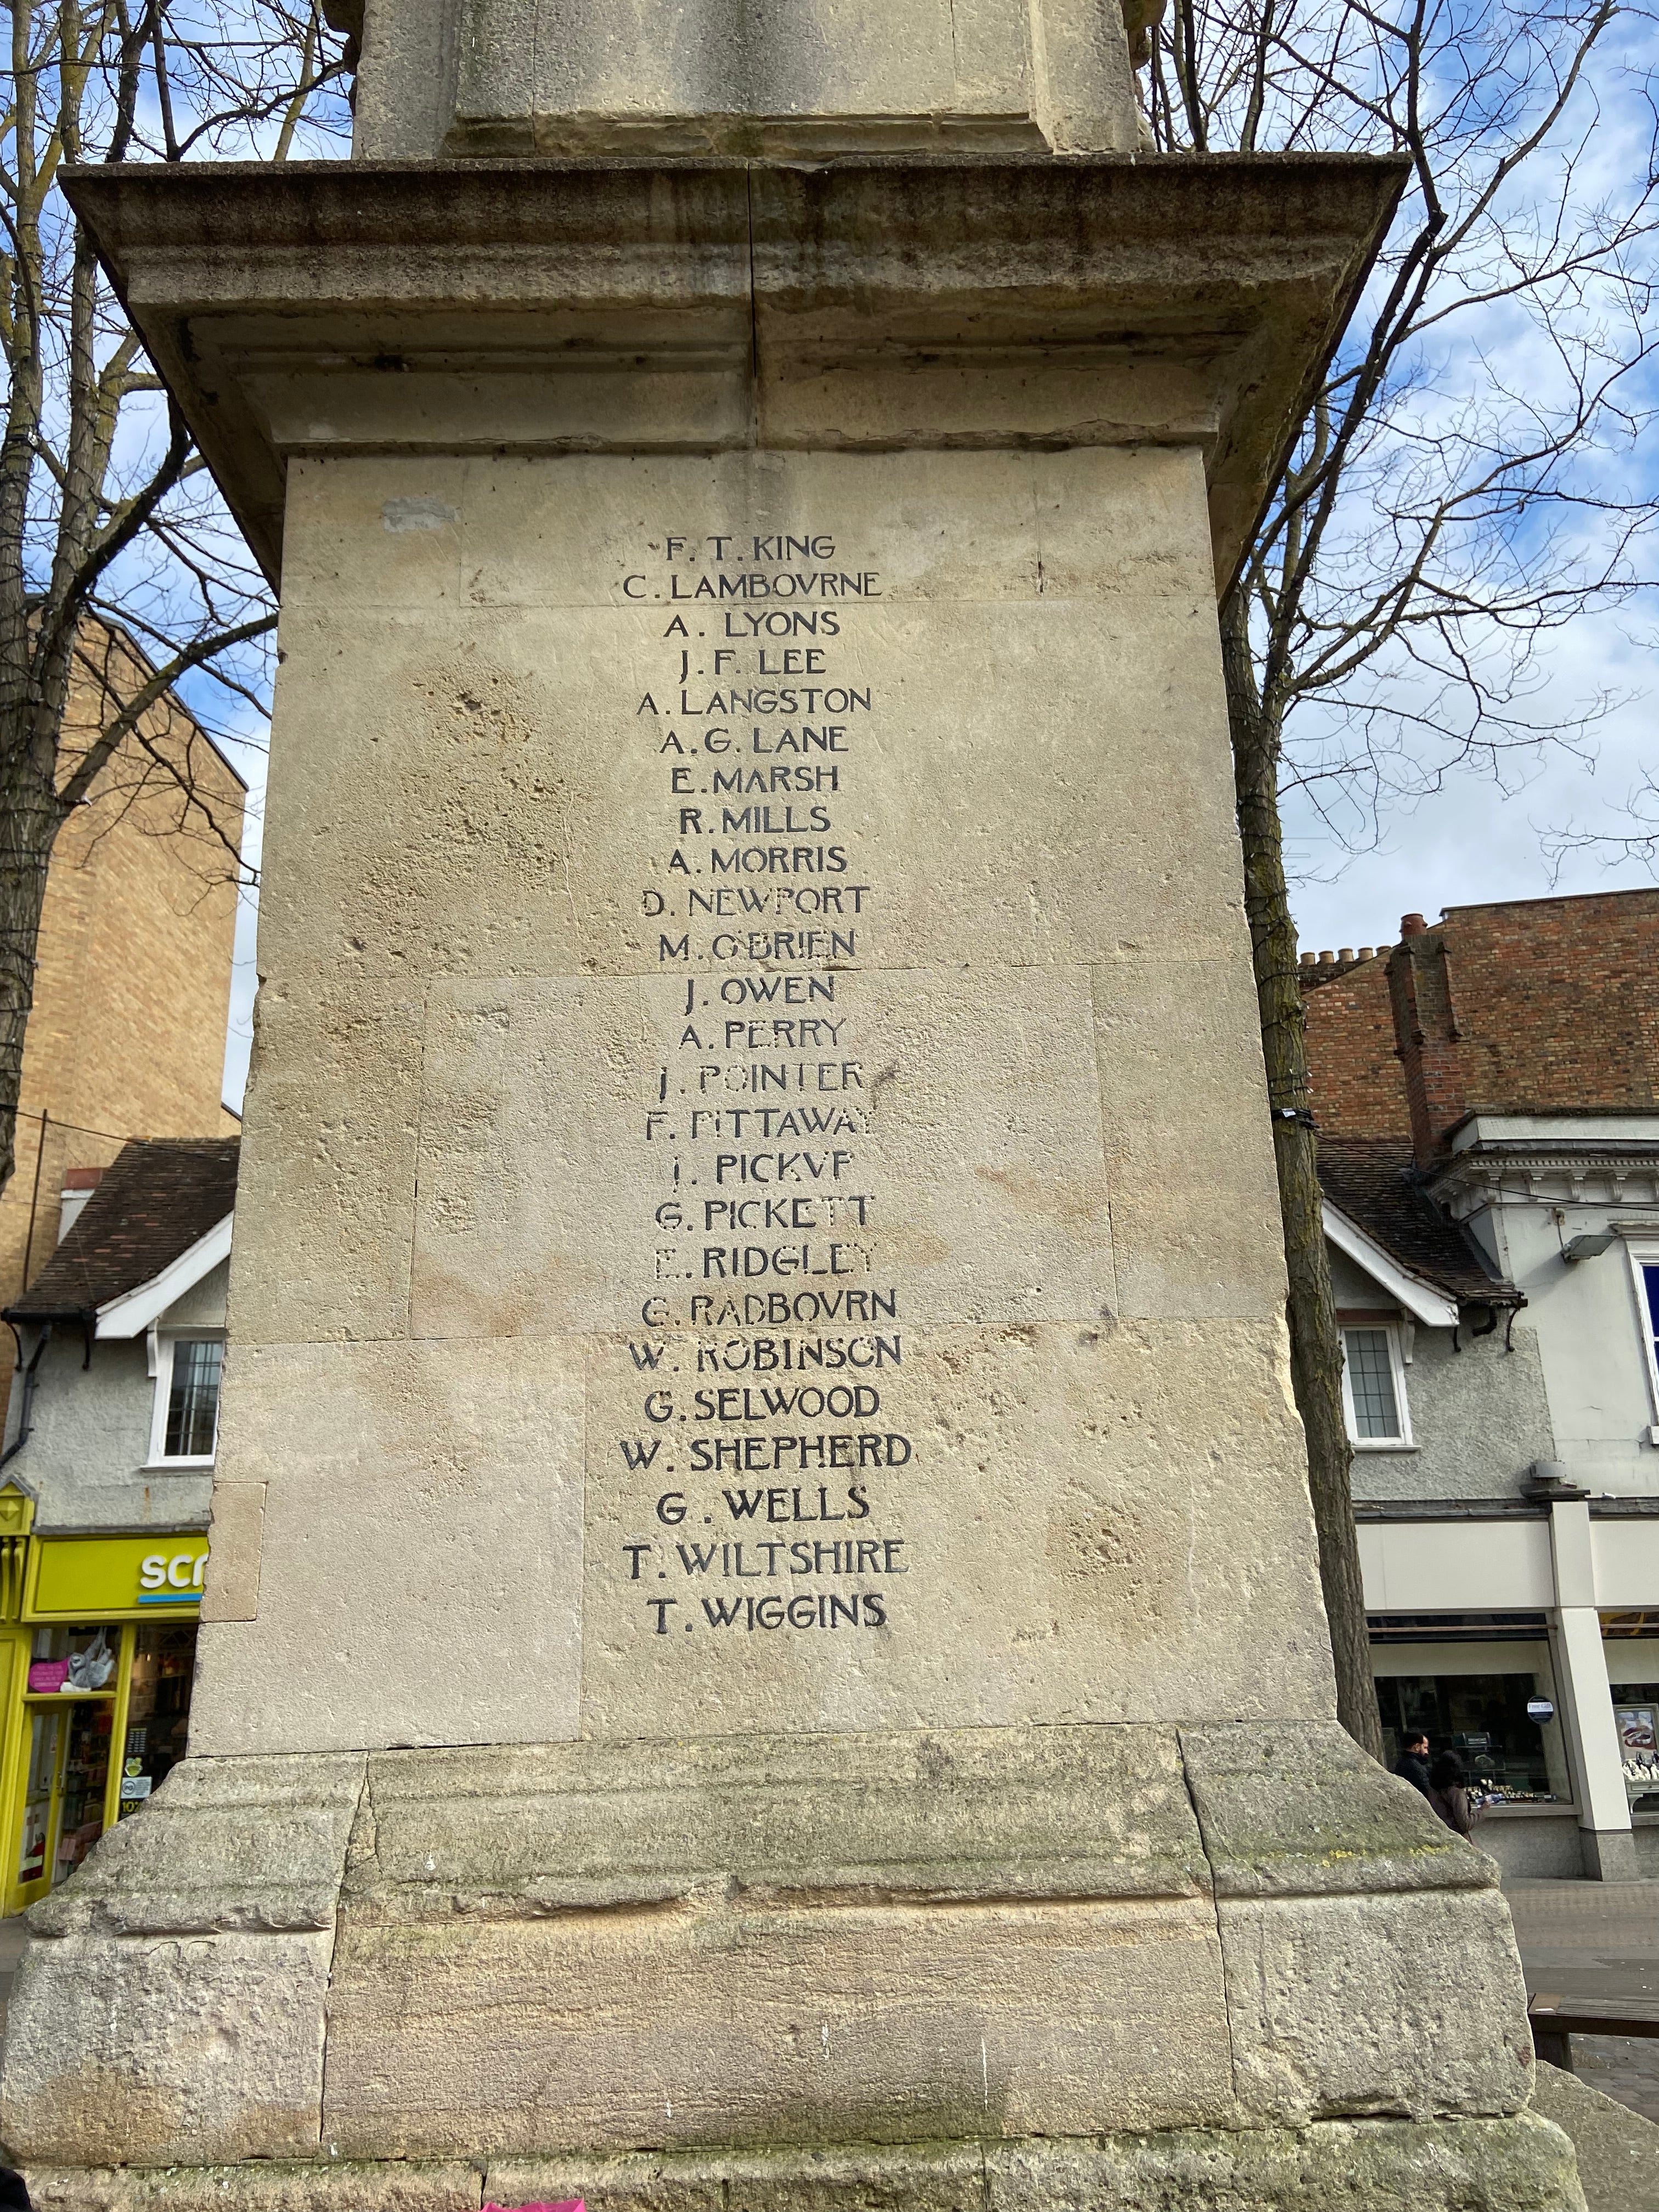 F. T. KING
C. LAMBOVRNE
A. LYONS
J. F. LEE
A. LANGSTON
A. G. LANE
E. MARSH
R. MILLS
A. MORRIS
D. NEWPORT
M. O'BRIEN
J. OWEN
A. PERRY
J. POINTER
F. PITTAWAY
J. PICKVP
G. PICKETT
E. RIDGLEY
G. RADBOVRN
W. ROBINSON
G. SELWOOD
W. SHEPHERD
G. WELLS
T. WILTSHIRE
T. WIGGINS